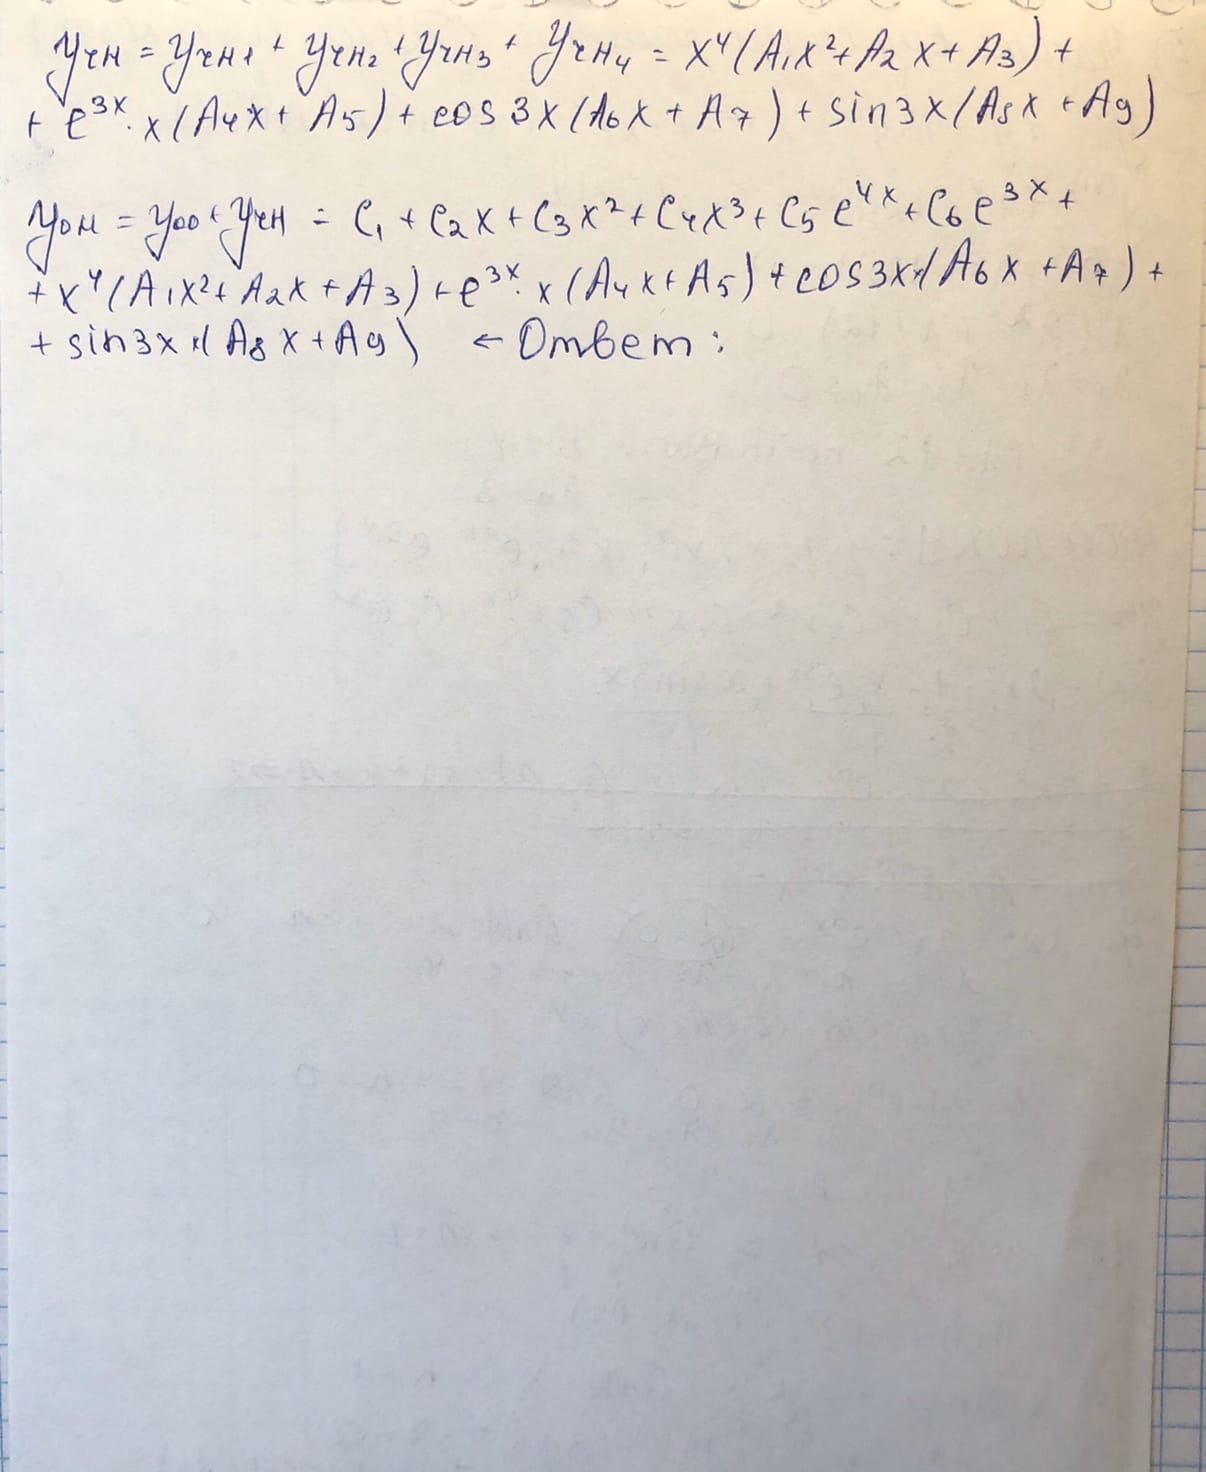 Yчн = Yчн1 + Yчн2 + Yчн3 + Yчн4 = x⁴(A₁x² + A₂x + A₃) +
+ e³ˣ · x(A₄x + A₅) + cos 3x(A₆x + A₇) + sin3x(A₈x + A₉)
Yон = Yоо + Yчн = C₁ + C₂x + C₃x² + C₄x³ + C₅e⁴ˣ + C₆e³ˣ +
+ x⁴(A₁x² + A₂x + A₃) + e³ˣ · x(A₄x + A₅) + cos3x·(A₆x + A₇) +
+ sin3x·(A₈x + A₉) ← Ответ: